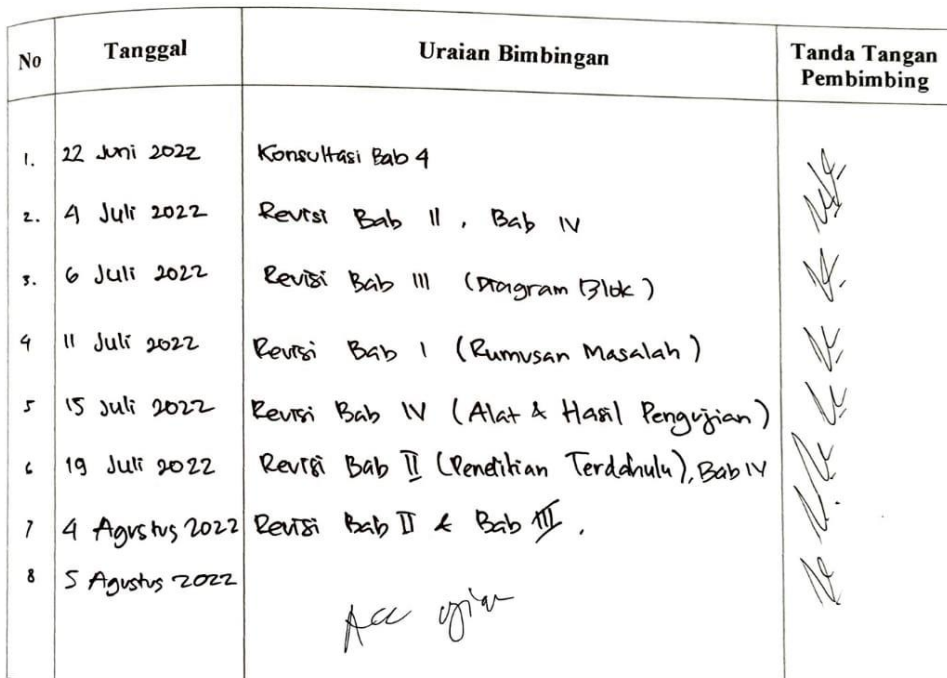 No Tanggal Uraian Bimbingan Tanda Tangan Pembimbing
1. 22 Juni 2022 Konsultasi Bab 4
2. 4 Juli 2022 Revisi Bab II , Bab IV
3. 6 Juli 2022 Revisi Bab III (Diagram Blok)
4 11 Juli 2022 Revisi Bab I (Rumusan Masalah)
5 15 Juli 2022 Revisi Bab IV (Alat & Hasil Pengujian)
6 19 Juli 2022 Revisi Bab II (Penelitian Terdahulu), Bab IV
7 4 Agustus 2022 Revisi Bab II & Bab III .
8 5 Agustus 2022
Acc ujian